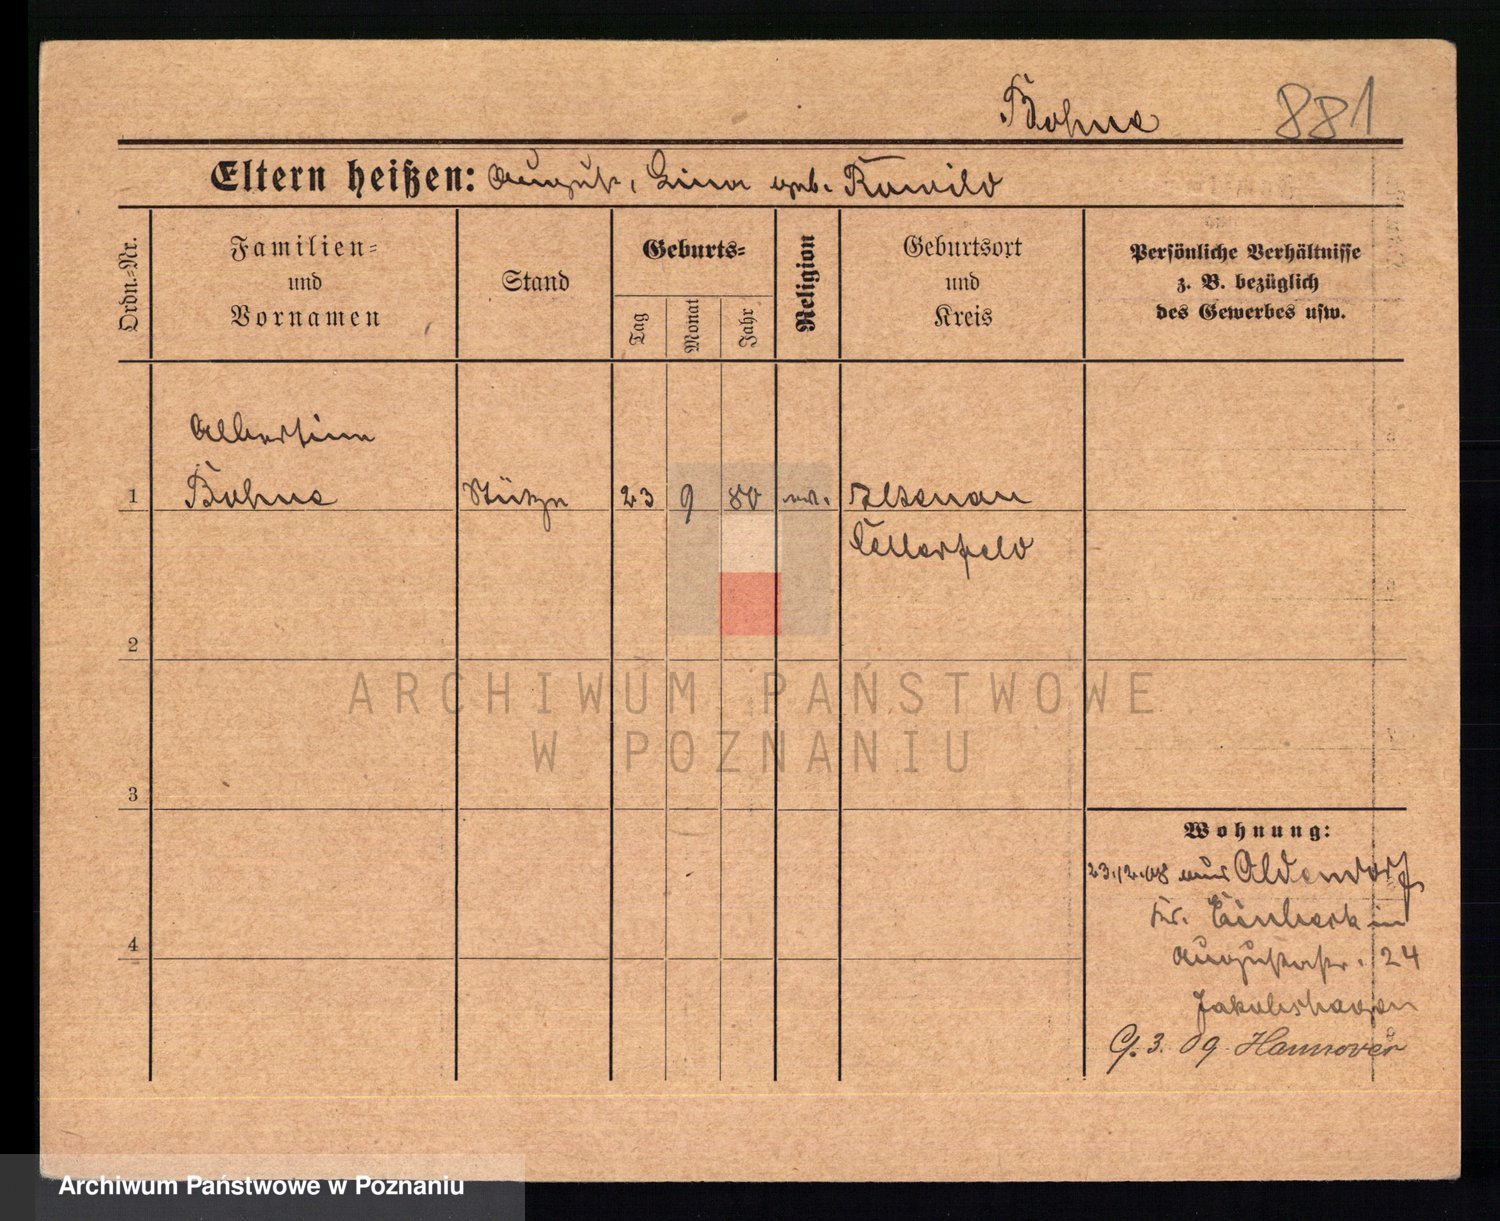 Bohne 881
Eltern heißen: August, Lina geb.
Ordn.-Nr.
Familien-
und
Vornamen
Stand
Geburts-
Tag
Monat
Jahr
Religion
Geburtsort
und
Kreis
Persönliche Verhältnisse
z. B. bezüglich
des Gewerbes usw.
Albertine
1 Bohne Stütze 23 9 80 Altenau
Zellerfeld
2
ARCHIWUM PAŃSTWOWE
W POZNANIU
3
Wohnung:
23.12.08 aus Aldendorf
Kr. Einbeck in
Augustastr. 24
Jakobshagen
9. 3. 09 Hannover
4
Archiwum Państwowe w Poznaniu